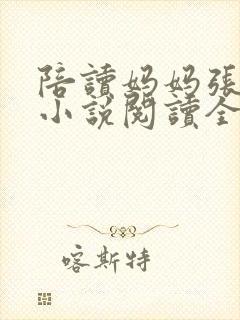 陪讀妈妈張
小說閱讀全
喀斯特